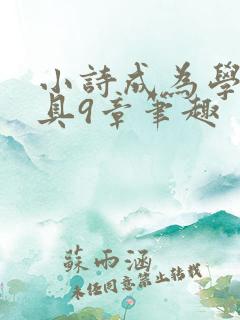 小詩成為學
具9章筆趣
蘇雨涵
未經同意禁止轉載